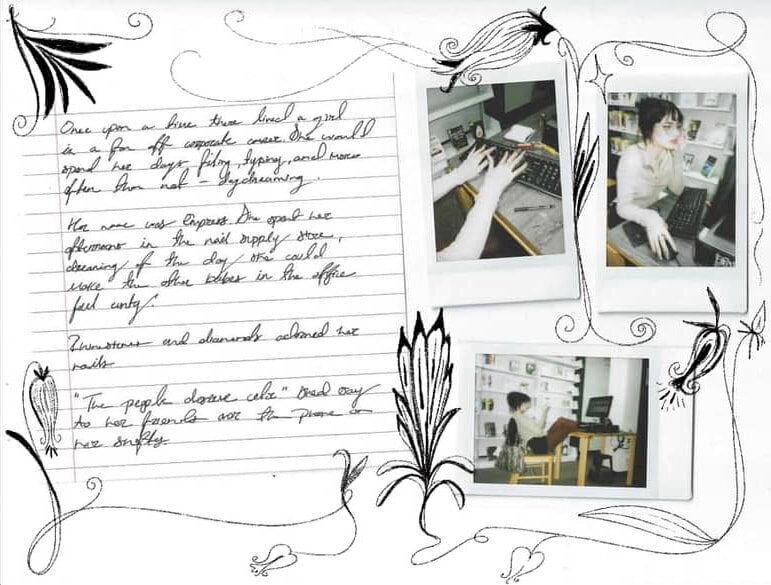 Once upon a time there lived a girl
in a far off corporate career. She would
spend her days filing, typing, and more
often than not - daydreaming.
Her name was Empress. She spent her
afternoons in the nail supply store,
dreaming of the day she could
make the other babes in the office
feel cunty.
Rhinestones and diamonds adorned her
nails
"The people deserve color" she'd say
to her friends over the phone on
her